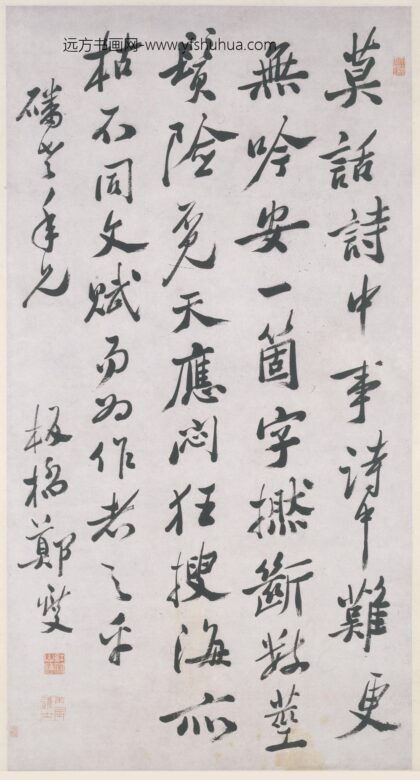 远方书画网-www.yfshuhua.com
莫話詩中事詩中難更
無吟安一箇字撚斷數莖
鬚險覓天應悶狂搜海亦
枯不同文賦易為作者之乎
年兄
板橋鄭燮